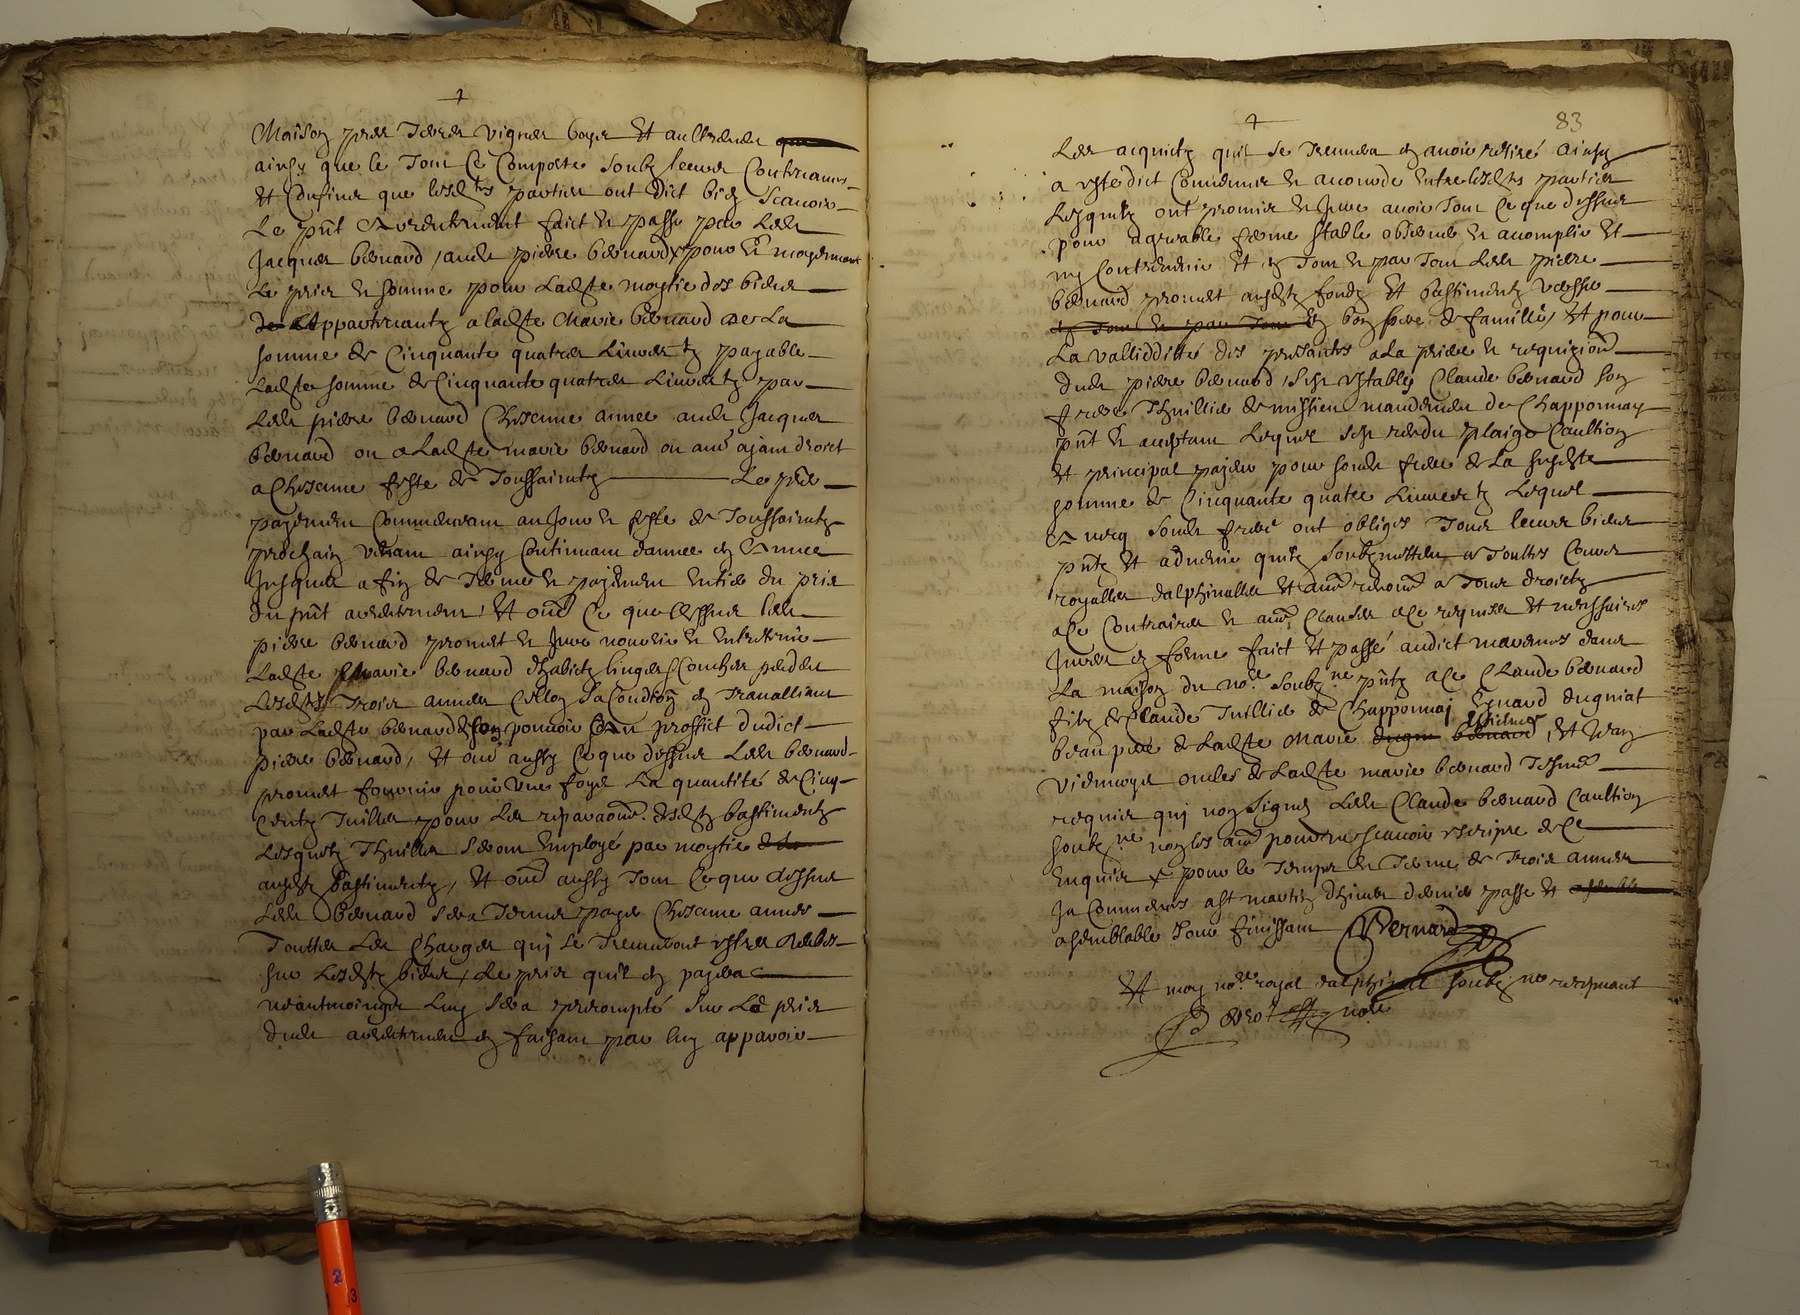 Maison prés Terres vignes boys et aultrement
ainsy que le tout Ce Comporte soubz leurs Contenances
et Confins que lesdtes parties ont dict bien scavoir
Le pnt arrentement faict et passé par Ledt
Jacques bernard, audt pierre bernard x pour et moyennant
Le pris et somme pour Ladte moytie des biens
Appartenantz a ladte Marie bernard de La
somme de Cinquante quatre Livres payable
Ladte somme de Cinquante quatre Livres par
Ledt pierre bernard Chascune année audt Jacques
bernard ou a Ladte marie bernard ou ayant droict
a Chascune feste de Toussaintz Le pr
payement Commencant au Jour et feste de Toussaintz
prochain venant ainsy Continuant dannee en annee
Jusques a fin de Terme et payement entier du pris
du pnt arrentement, et oultre Ce que dessus ledt
pierre bernard promet et Jure nourrir et Entretenir
Ladte Marie bernard dhabictz linges Coucher pendant
Lesdtes Trois annees selon sa Condition en Travalliant
par Ladte bernard de son pouvoir au proffict dudict
pierre bernard, et oultre aussy Ce que dessus Ledt bernard
promet fournir pour une foys La quantité de Cinq
Centz Tuilles pour Les reparaons desdtz bastimentz
Lesquelz Thuilles seront Employé par moytie
ausdtz bastimentz, et oultre aussy Tout Ce que dessus
Ledt Bernard sera Tenu payer Chascune année
Touttes Les Charges quj se Treuveront estre debes
sur Lesdtz biens, Le pris quil en payera
neantmoingtz Luy sera precompté sur Le pris
dudt arrentement en faisant par luy apparoir
83
Les acquictz quil se Treuvera en avoir retiré Ainsy
a esté dict Convenu et accordé entre lesdtes parties
Lesquelz ont promis et Juré avoir Tout Ce que dessus
pour agreable ferme stable observer et acomplir et
ny Contrevenir et en Tout et par Tout Ledt pierre
bernard promet ausdtz fondz et bastimentz verser
en bon pere de famille, et pour
La validdité des presantes a La priere et requizion
dudt pierre bernard, sest estably Claude bernard son
frere Thuillier de mistien mandement de Chapponnay
pnt et aceptant Lequel sest rendu plaige Caultion
et principal payeur pour sondt frere de La susdte
somme de Cinquante quatre Livres Lequel
avecq sondt frere ont obliges Tous leurs biens
pntz et advenir quilz soubzmettent a Touttes Cours
royalles dalphinalles et avec renon a Tous droictz
a Ce Contraires et avec Clauses a Ce requises et necessaires
Jurés en forme faict et passé audict marennes dans
La maison du nore soubzne pntz a Ce Claude bernard
filz de Claude Tuillier de Chapponnaj Eynard Duguiat
beau pere de Ladte Marie bernard, et
oncles de Ladte marie bernard Tesmoingz
requis quj non signés Ledt Claude bernard Caultion
soubzne non les aultres pour ne scavoir escripre de Ce
Enquis x pour le Temps et Terme de Trois annees
Ja Commences a st martin dhiver dernier passé et
a semblable Jour finissant Bernard
Et moy nore royal dalphinal soubzne recepvant
nore